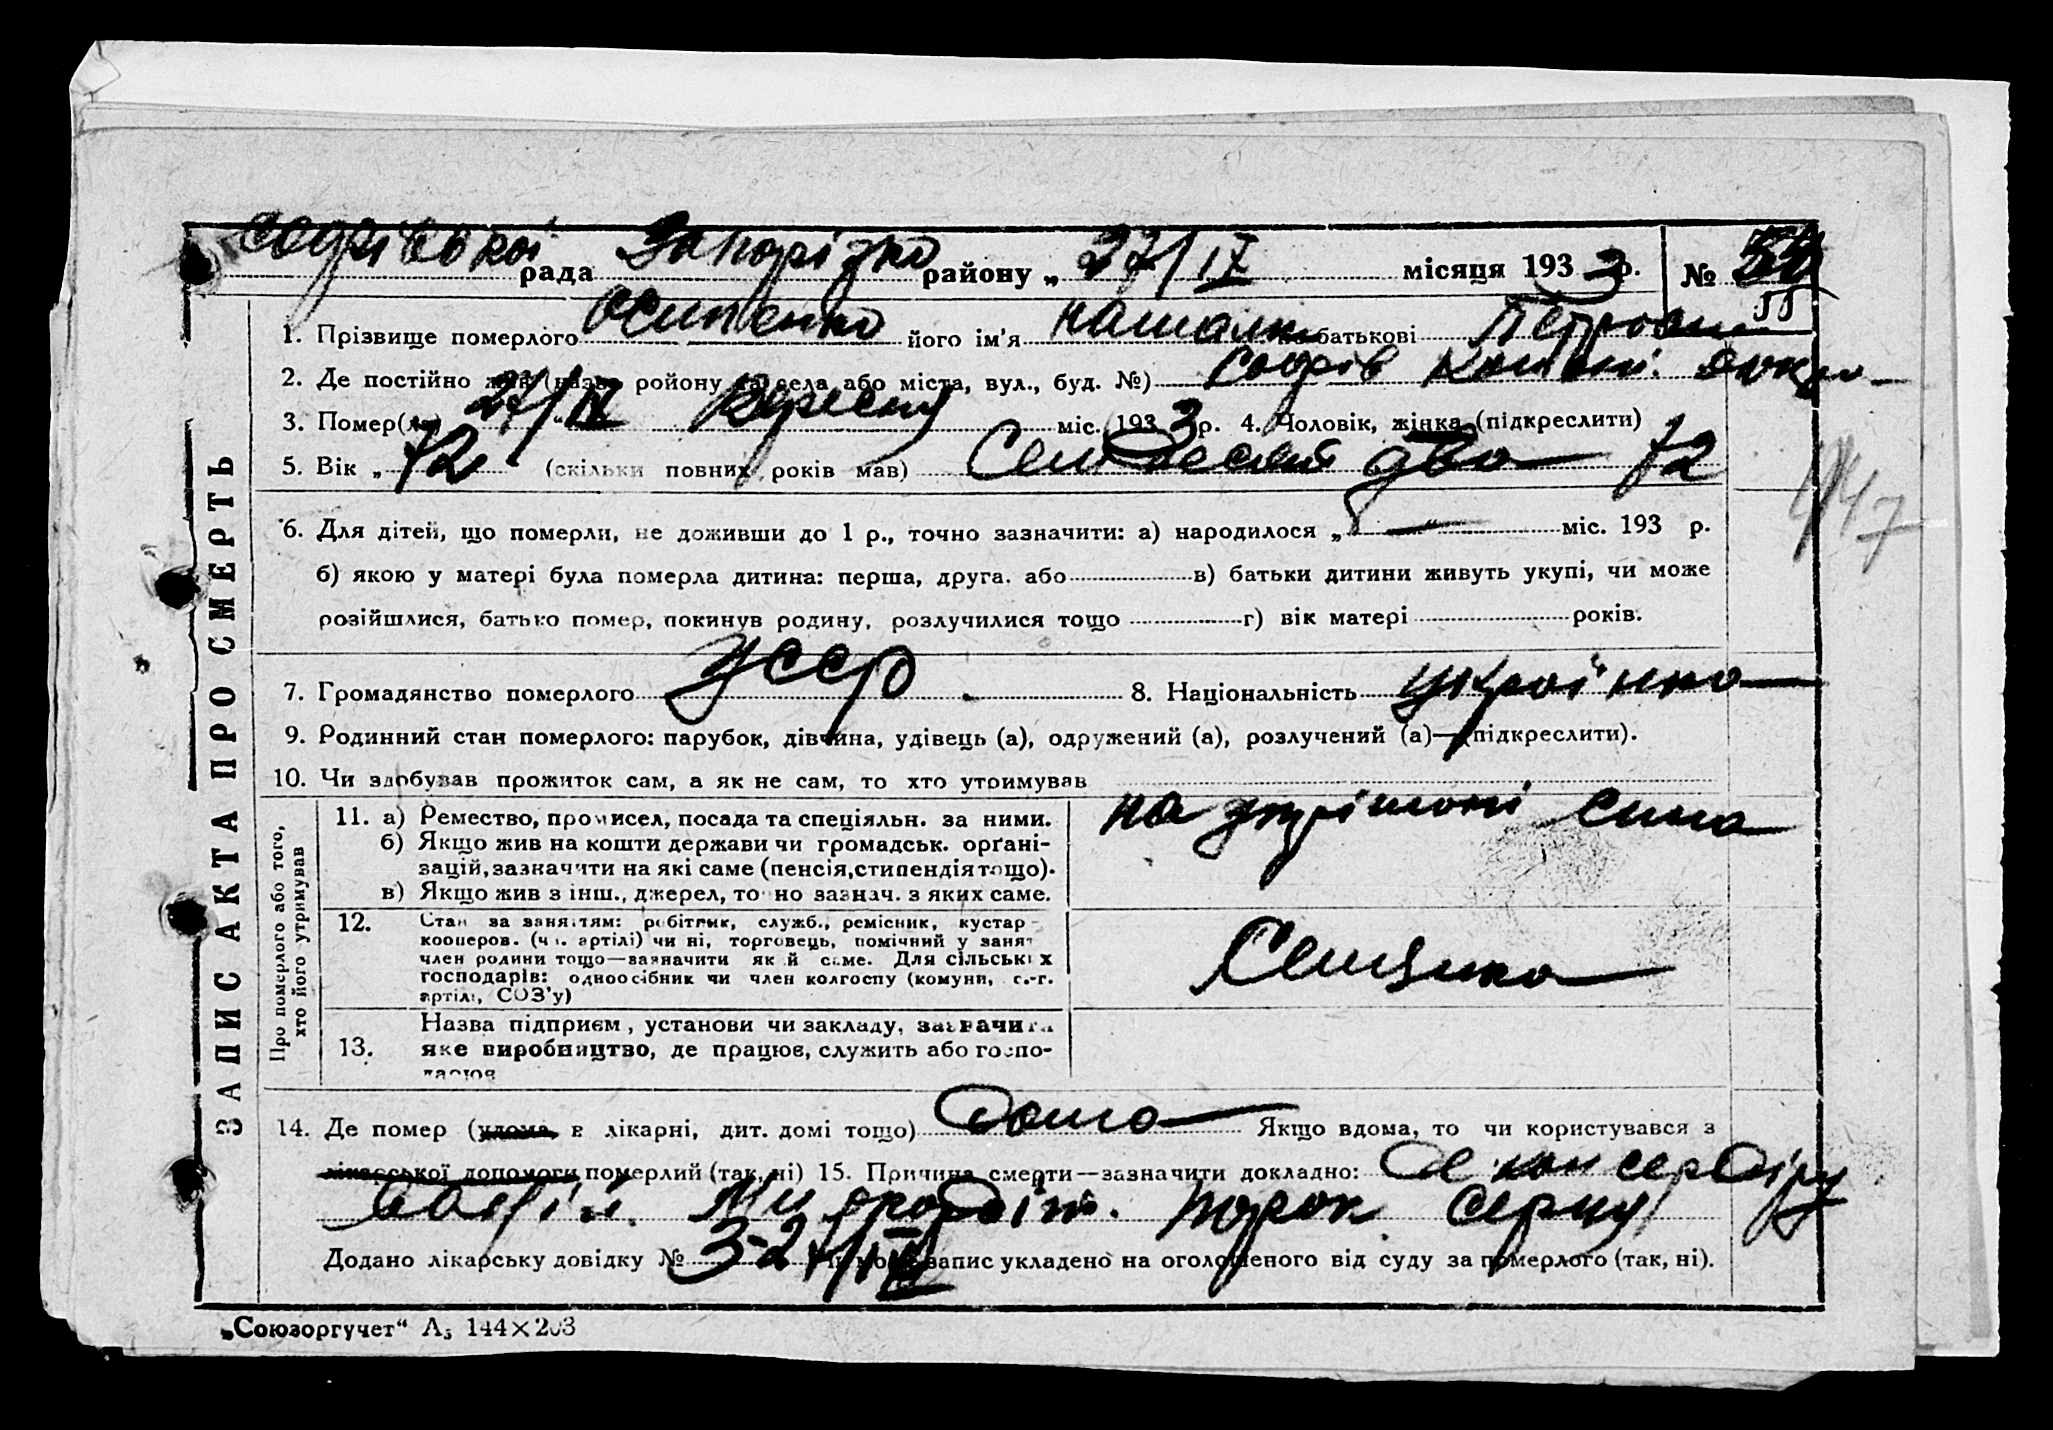 рада Запорізко району „ 27/IX місяця 1933 р. № 55
1. Прізвище померлого Осипенко його ім'я Наталка по батькові Петровна
2. Де постійно жив (назва району та села або міста, вул., буд. №)
3. Помер(ла) 27/IX Вересня міс. 1933 р. 4. Чоловік, жінка (підкреслити)
5. Вік „ 72 " (скільки повних років мав) Семдесят два 72
6. Для дітей, що померли, не доживши до 1 р., точно зазначити: а) народилося „ — " міс. 193 р.
б) якою у матері була померла дитина: перша, друга, або в) батьки дитини живуть укупі, чи може
розійшлися, батько помер, покинув родину, розлучилися тощо г) вік матері років.
7. Громадянство померлого УССР 8. Національність україинка
9. Родинний стан померлого: парубок, дівчина, удівець (а), одружений (а), розлучений (а)—(підкреслити).
10. Чи здобував прожиток сам, а як не сам, то хто утримував
11. а) Ремество, промисел, посада та спеціяльн. за ними.
б) Якщо жив на кошти держави чи громадськ. орґані-
зацій, зазначити на які саме (пенсія, стипендія тощо).
в) Якщо жив з інш., джерел, точно зазнач. з яких саме.
на утріманні сина
12. Стан за заняттям: робітник, служб., ремісник, кустар
кооперов. (чл. артілі) чи ні, торговець, помічний у занят
член родини тощо—зазначити який саме. Для сільських
господарів: одноосібник чи член колгоспу (комуни, с.-г.
артілі, СОЗ'у)
13. Назва підприєм., установи чи закладу, зазначити
яке виробництво, де працює, служить або госпо-
дарює
14. Де помер (удома, в лікарні, дит. домі тощо) дома Якщо вдома, то чи користувався з
лікарської допомоги померлий (так, ні) 15. Причина смерти—зазначити докладно:
порок серця
Додано лікарську довідку № запис укладено на оголошеного від суду за померлого (так, ні).
ЗАПИС АКТА ПРО СМЕРТЬ
Про померлого або того,
хто його утримував
„Союзоргучет" А5 144×203
447